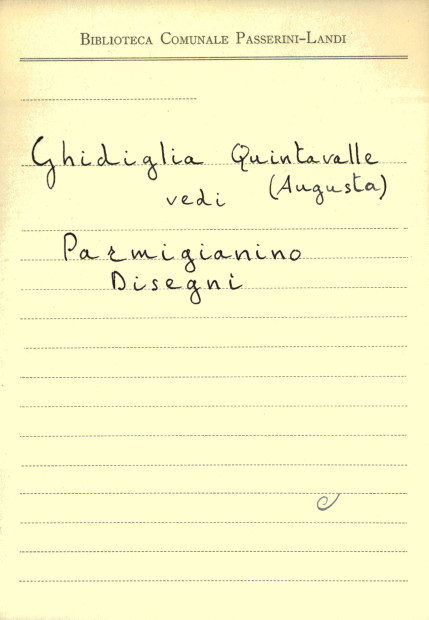 Biblioteca Comunale Passerini-Landi
Ghidiglia Quintavalle
(Augusta)
vedi
Parmigianino
Disegni